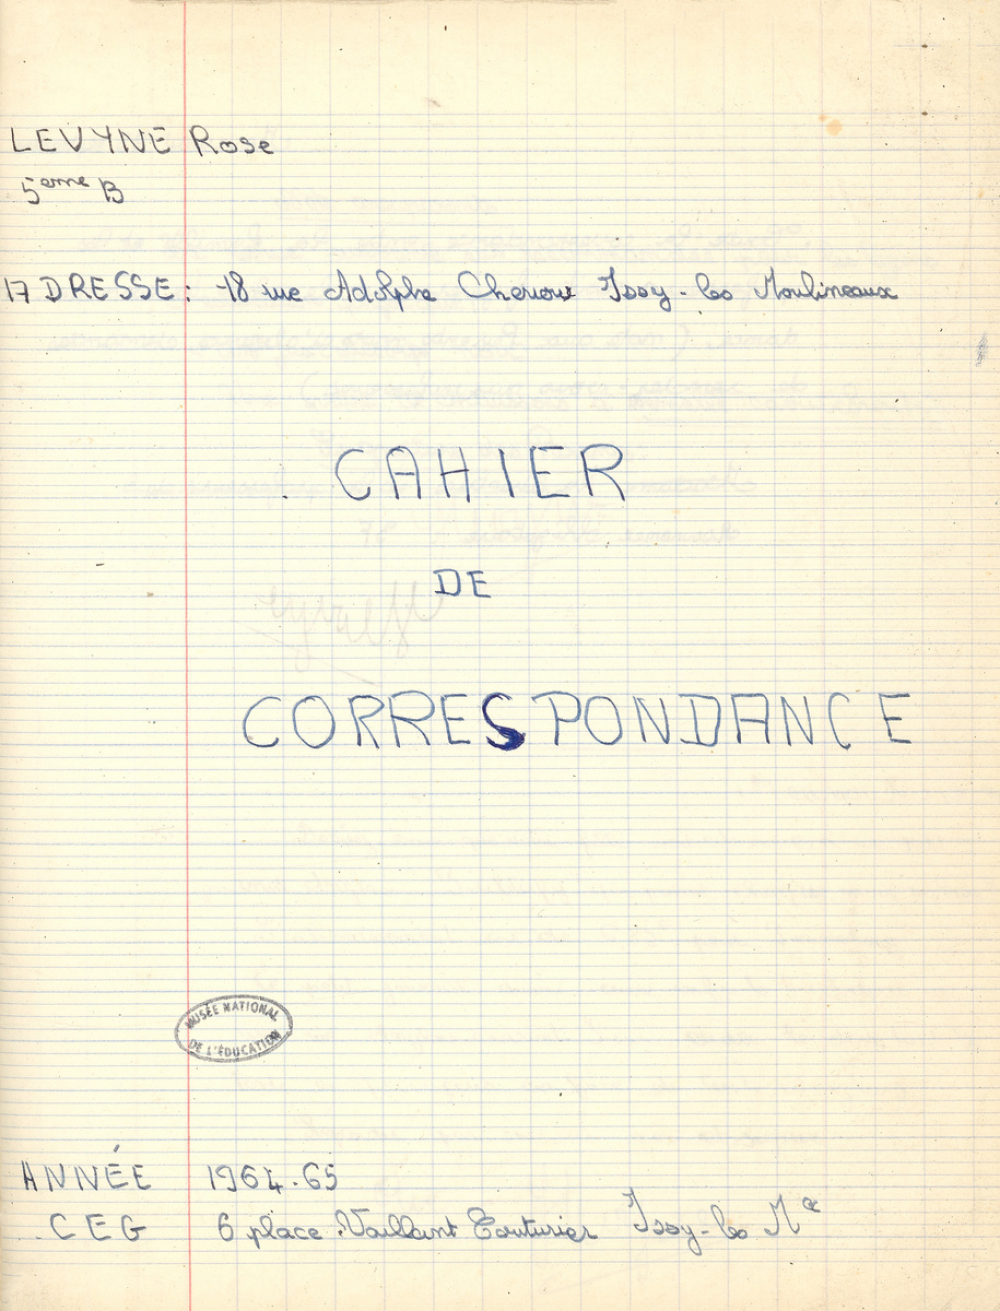 LEVYNE Rose
5ème B
ADRESSE: 18 rue Adolphe Cherioux Issy-les Moulineaux
CAHIER
DE
CORRESPONDANCE
MUSÉE NATIONAL
DE L'ÉDUCATION
ANNÉE 1964-65
CEG 6 place Vaillant Couturier Issy-les Mx